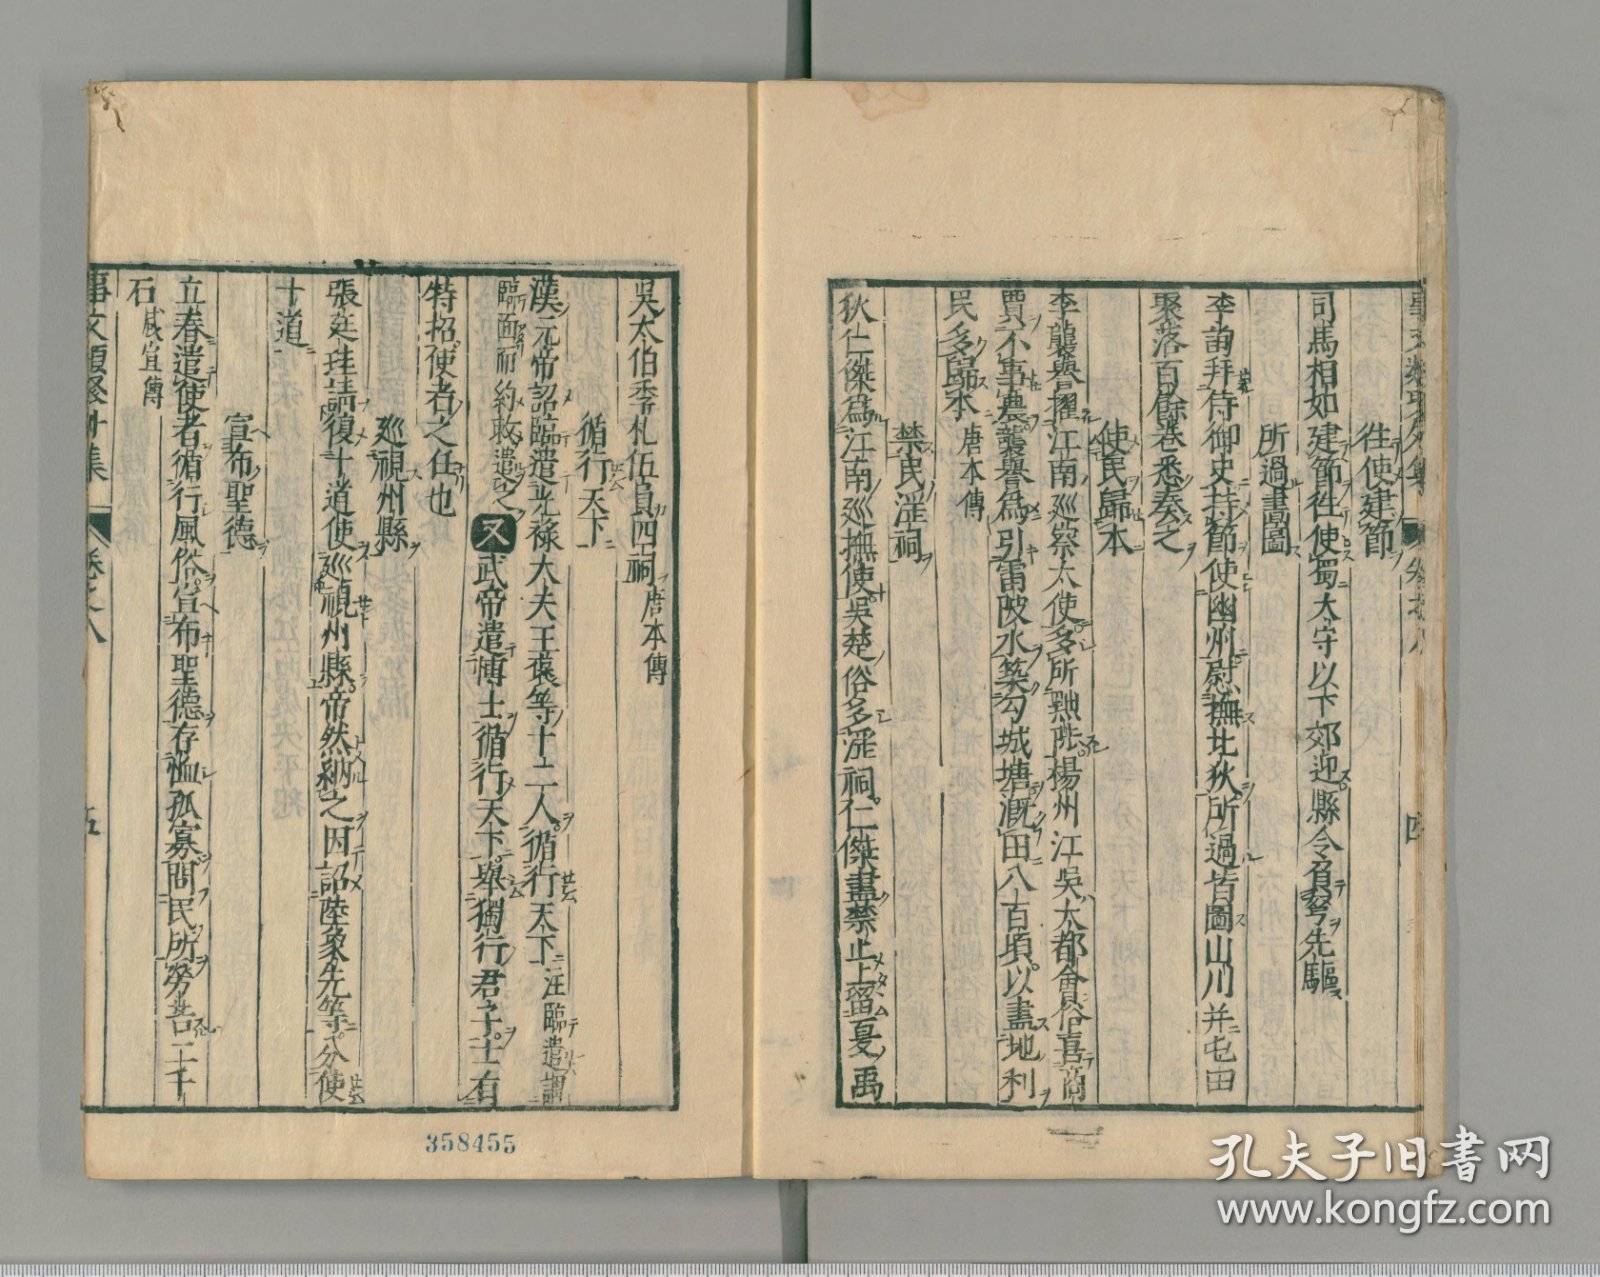 往使建節
司馬相如建節往使蜀太守以下郊迎縣令負弩先驅
所過畫圖
李訥拜侍御史持節使幽州尉撫北狄所過皆圖山川并屯田
聚落百餘卷悉奏之
使民歸本
李襲譽擢江南巡察大使多所黜陟楊州江吳大都會俗喜商
賈不事農襲譽為引雷陂水築勾城塘溉田八百頃以盡地利
民多歸本 唐本傳
禁民淫祠
狄仁傑為江南巡撫使吳楚俗多淫祠仁傑盡禁止止留夏禹
吳太伯季札伍員四祠 唐本傳
循行天下
漢元帝詔臨遣光祿大夫王褒等十二人循行天下 注臨遣謂
臨面而約敕遣之 又 武帝遣博士循行天下舉獨行君子士有
特招使者之任也
巡視州縣
張廷珪請復十道使巡視州縣帝然納之因詔陸象先等分使
十道
宣布聖德
立春遣使者循行風俗宣布聖德存恤孤寡問民所勞苦二千
石 咸宣傳
事文類聚外集 卷之八 五
358455
孔夫子旧書网
www.kongfz.com